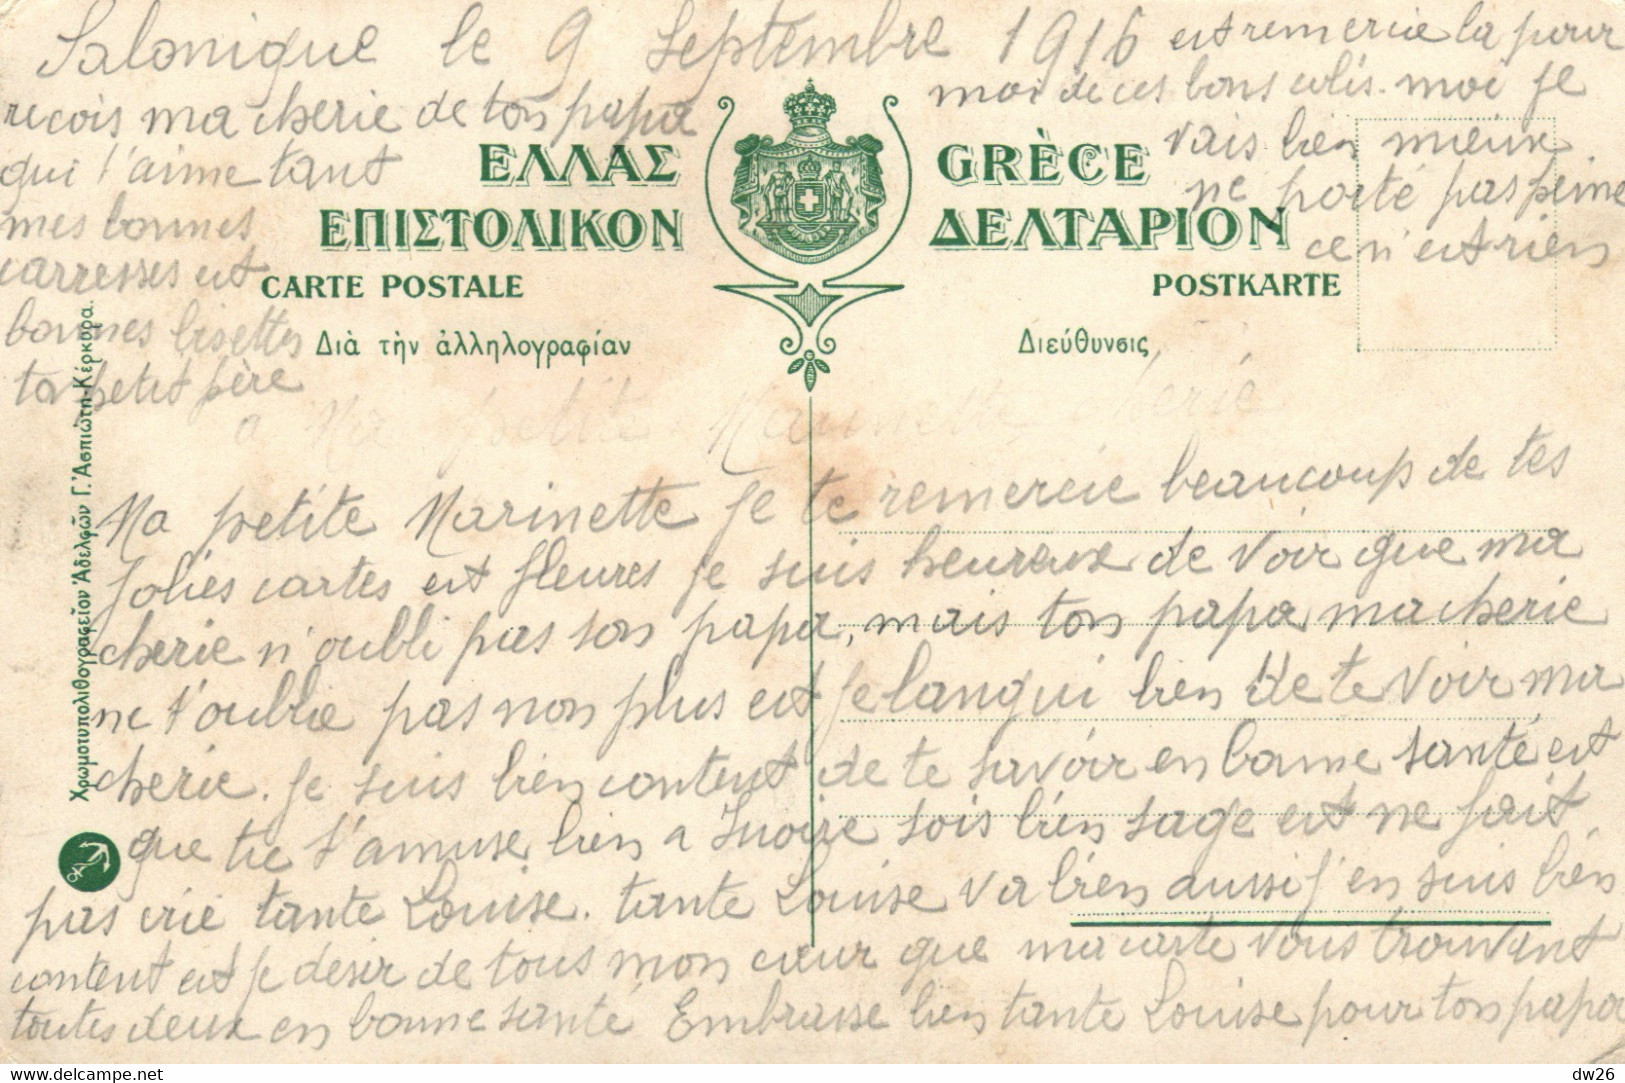 Salonique le 9 Septembre 1916
a Ma petite Marinette cherie
Ma petite Marinette je te remercie beaucoup de tes
jolies cartes est fleures je suis heureux de voir que ma
cherie n'oubli pas son papa, mais ton papa ma cherie
ne t'oublie pas non plus est je langui bien de te voir ma
cherie. je suis bien content de te savoir en bonne santé est
que tu t'amuse bien a sois bien sage est ne fait
pas crié tante Louise. tante Louise va bien aussi j'en suis bien
content est je desir de tous mon cœur que ma carte vous trouvent
toutes deux en bonne santé Embrasse bien tante Louise pour ton papa
est remercie la pour
moi de ces bons colis. moi je
vais bien mieux
ne porté pas peine
ce n'est rien
recois ma cherie de ton papa
qui t'aime tant
mes bonnes
carresses est
bonnes bisettes
ton petit père
ΕΛΛΑΣ GRÈCE
ΕΠΙΣΤΟΛΙΚΟΝ ΔΕΛΤΑΡΙΟΝ
CARTE POSTALE POSTKARTE
Διὰ τὴν ἀλληλογραφίαν Διεύθυνσις
Χρωμοτυπολιθογραφεῖον Ἀδελφῶν Γ. Ἀσπιώτη-Κέρκυρα.
www.delcampe.net
dw26